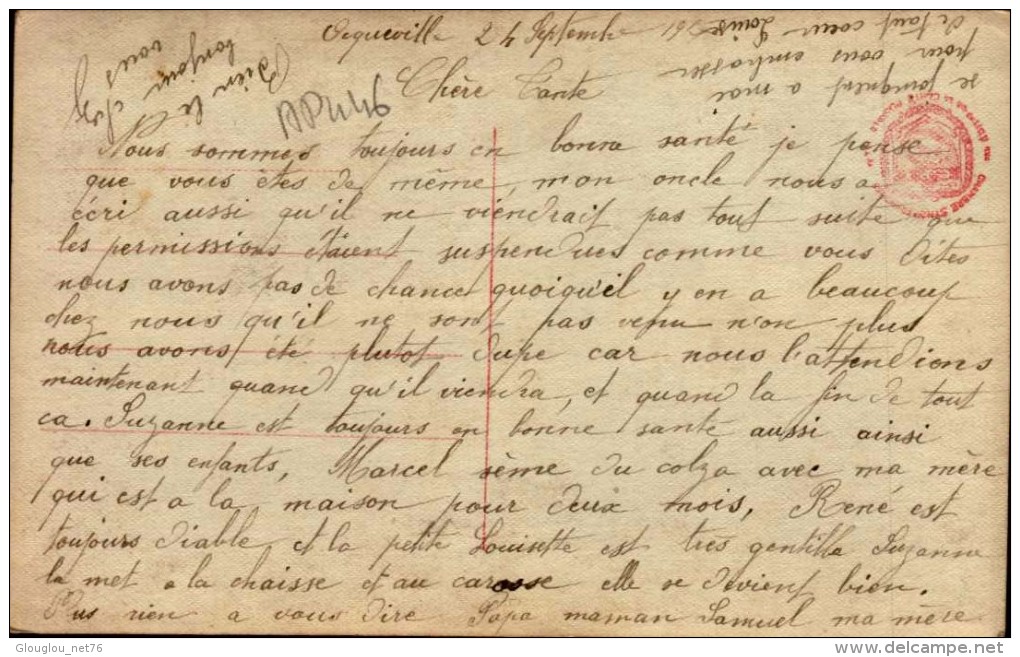 24 Septembre
Chère Tante
Nous sommes toujours en bonne santé je pense
que vous êtes de même, mon oncle nous a
écri aussi qu'il ne viendrait pas tout suite que
les permissions étaient suspendues comme vous dites
nous avons pas de chance quoiqu'il y en a beaucoup
chez nous qu'il ne sont pas venu n'on plus
nous avons été plutot dupe car nous l'attendions
maintenant quand qu'il viendra, et quand la fin de tout
ca. Suzanne est toujours en bonne santé aussi ainsi
que ses enfants, Marcel sème du colza avec ma mère
qui est a la maison pour deux mois, René est
toujours diable et la petite Louisette est très gentille Suzanne
la met a la chaisse et au carosse elle se devient bien.
Plus rien a vous dire Papa maman Samuel ma mère
se joingnent a moi
pour vous embrasser
de tout coeur Louise
Bien le
bonjour
vous
APM46
Glouglou_net76
delcampe.net